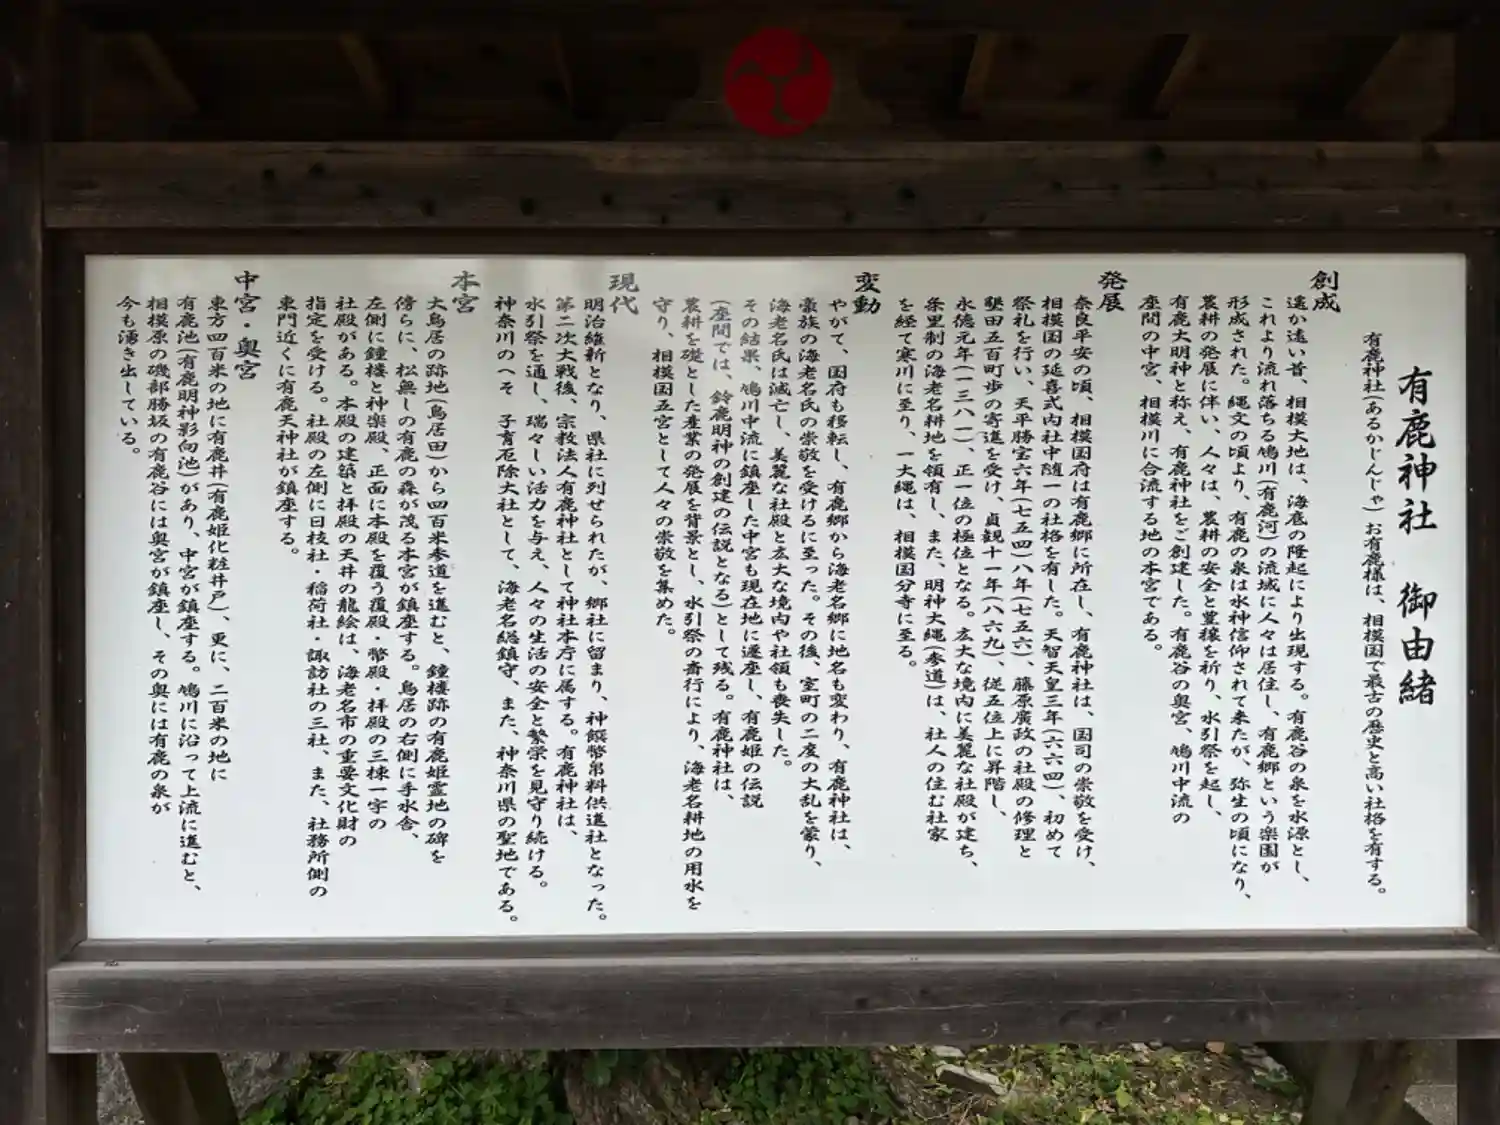 有鹿神社 御由緒
有鹿神社(あるかじんじゃ)お有鹿様は、相模国で最古の歴史と高い社格を有する。
創成
遙か遠い昔、相模大地は、海底の隆起により出現する。有鹿谷の泉を水源とし、
これより流れ落ちる鳩川(有鹿河)の流域に人々は居住し、有鹿郷という楽園が
形成された。縄文の頃より、有鹿の泉は水神信仰されて来たが、弥生の頃になり、
農耕の発展に伴い、人々は、農耕の安全と豊穣を祈り、水引祭を起し、
有鹿大明神と称え、有鹿神社をご創建した。有鹿谷の奥宮、鳩川中流の
座間の中宮、相模川に合流する地の本宮である。
発展
奈良平安の頃、相模国府は有鹿郷に所在し、有鹿神社は、国司の崇敬を受け、
相模国の延喜式内社中随一の社格を有した。天智天皇三年(六六四)、初めて
祭礼を行い、天平勝宝六年(七五四)八年(七五六)、藤原廣政の社殿の修理と
墾田五百町歩の寄進を受け、貞観十一年(八六九)、従五位上に昇階し、
永徳元年(一三八一)、正一位の極位となる。広大な境内に美麗な社殿が建ち、
条里制の海老名耕地を領有し、また、明神大縄(参道)は、社人の住む社家
を経て寒川に至り、一大縄は、相模国分寺に至る。
変動
やがて、国府も移転し、有鹿郷から海老名郷に地名も変わり、有鹿神社は、
豪族の海老名氏の崇敬を受けるに至った。その後、室町の二度の大乱を蒙り、
海老名氏は滅亡し、美麗な社殿と広大な境内や社領も喪失した。
その結果、鳩川中流に鎮座した中宮も現在地に遷座し、有鹿姫の伝説
(座間では、鈴鹿明神の創建の伝説となる)として残る。有鹿神社は、
農耕を礎とした産業の発展を背景とし、水引祭の斎行により、海老名耕地の用水を
守り、相模国五宮として人々の崇敬を集めた。
現代
明治維新となり、県社に列せられたが、郷社に留まり、神饌幣帛料供進社となった。
第二次大戦後、宗教法人有鹿神社として神社本庁に属する。有鹿神社は、
水引祭を通し、瑞々しい活力を与え、人々の生活の安全と繁栄を見守り続ける。
神奈川のへそ 子育厄除大社として、海老名総鎮守、また、神奈川県の聖地である。
本宮
大鳥居の跡地(鳥居田)から四百米参道を進むと、鐘楼跡の有鹿姫霊地の碑を
傍らに、松無しの有鹿の森が茂る本宮が鎮座する。鳥居の右側に手水舎、
左側に鐘楼と神楽殿、正面に本殿を覆う覆殿・幣殿・拝殿の三棟一宇の
社殿がある。本殿の建築と拝殿の天井の龍絵は、海老名市の重要文化財の
指定を受ける。社殿の左側に日枝社・稲荷社・諏訪社の三社、また、社務所側の
東門近くに有鹿天神社が鎮座する。
中宮・奥宮
東方四百米の地に有鹿井(有鹿姫化粧井戸)、更に、二百米の地に
有鹿池(有鹿明神影向池)があり、中宮が鎮座する。鳩川に沿って上流に進むと、
相模原の磯部勝坂の有鹿谷には奥宮が鎮座し、その奥には有鹿の泉が
今も湧き出している。